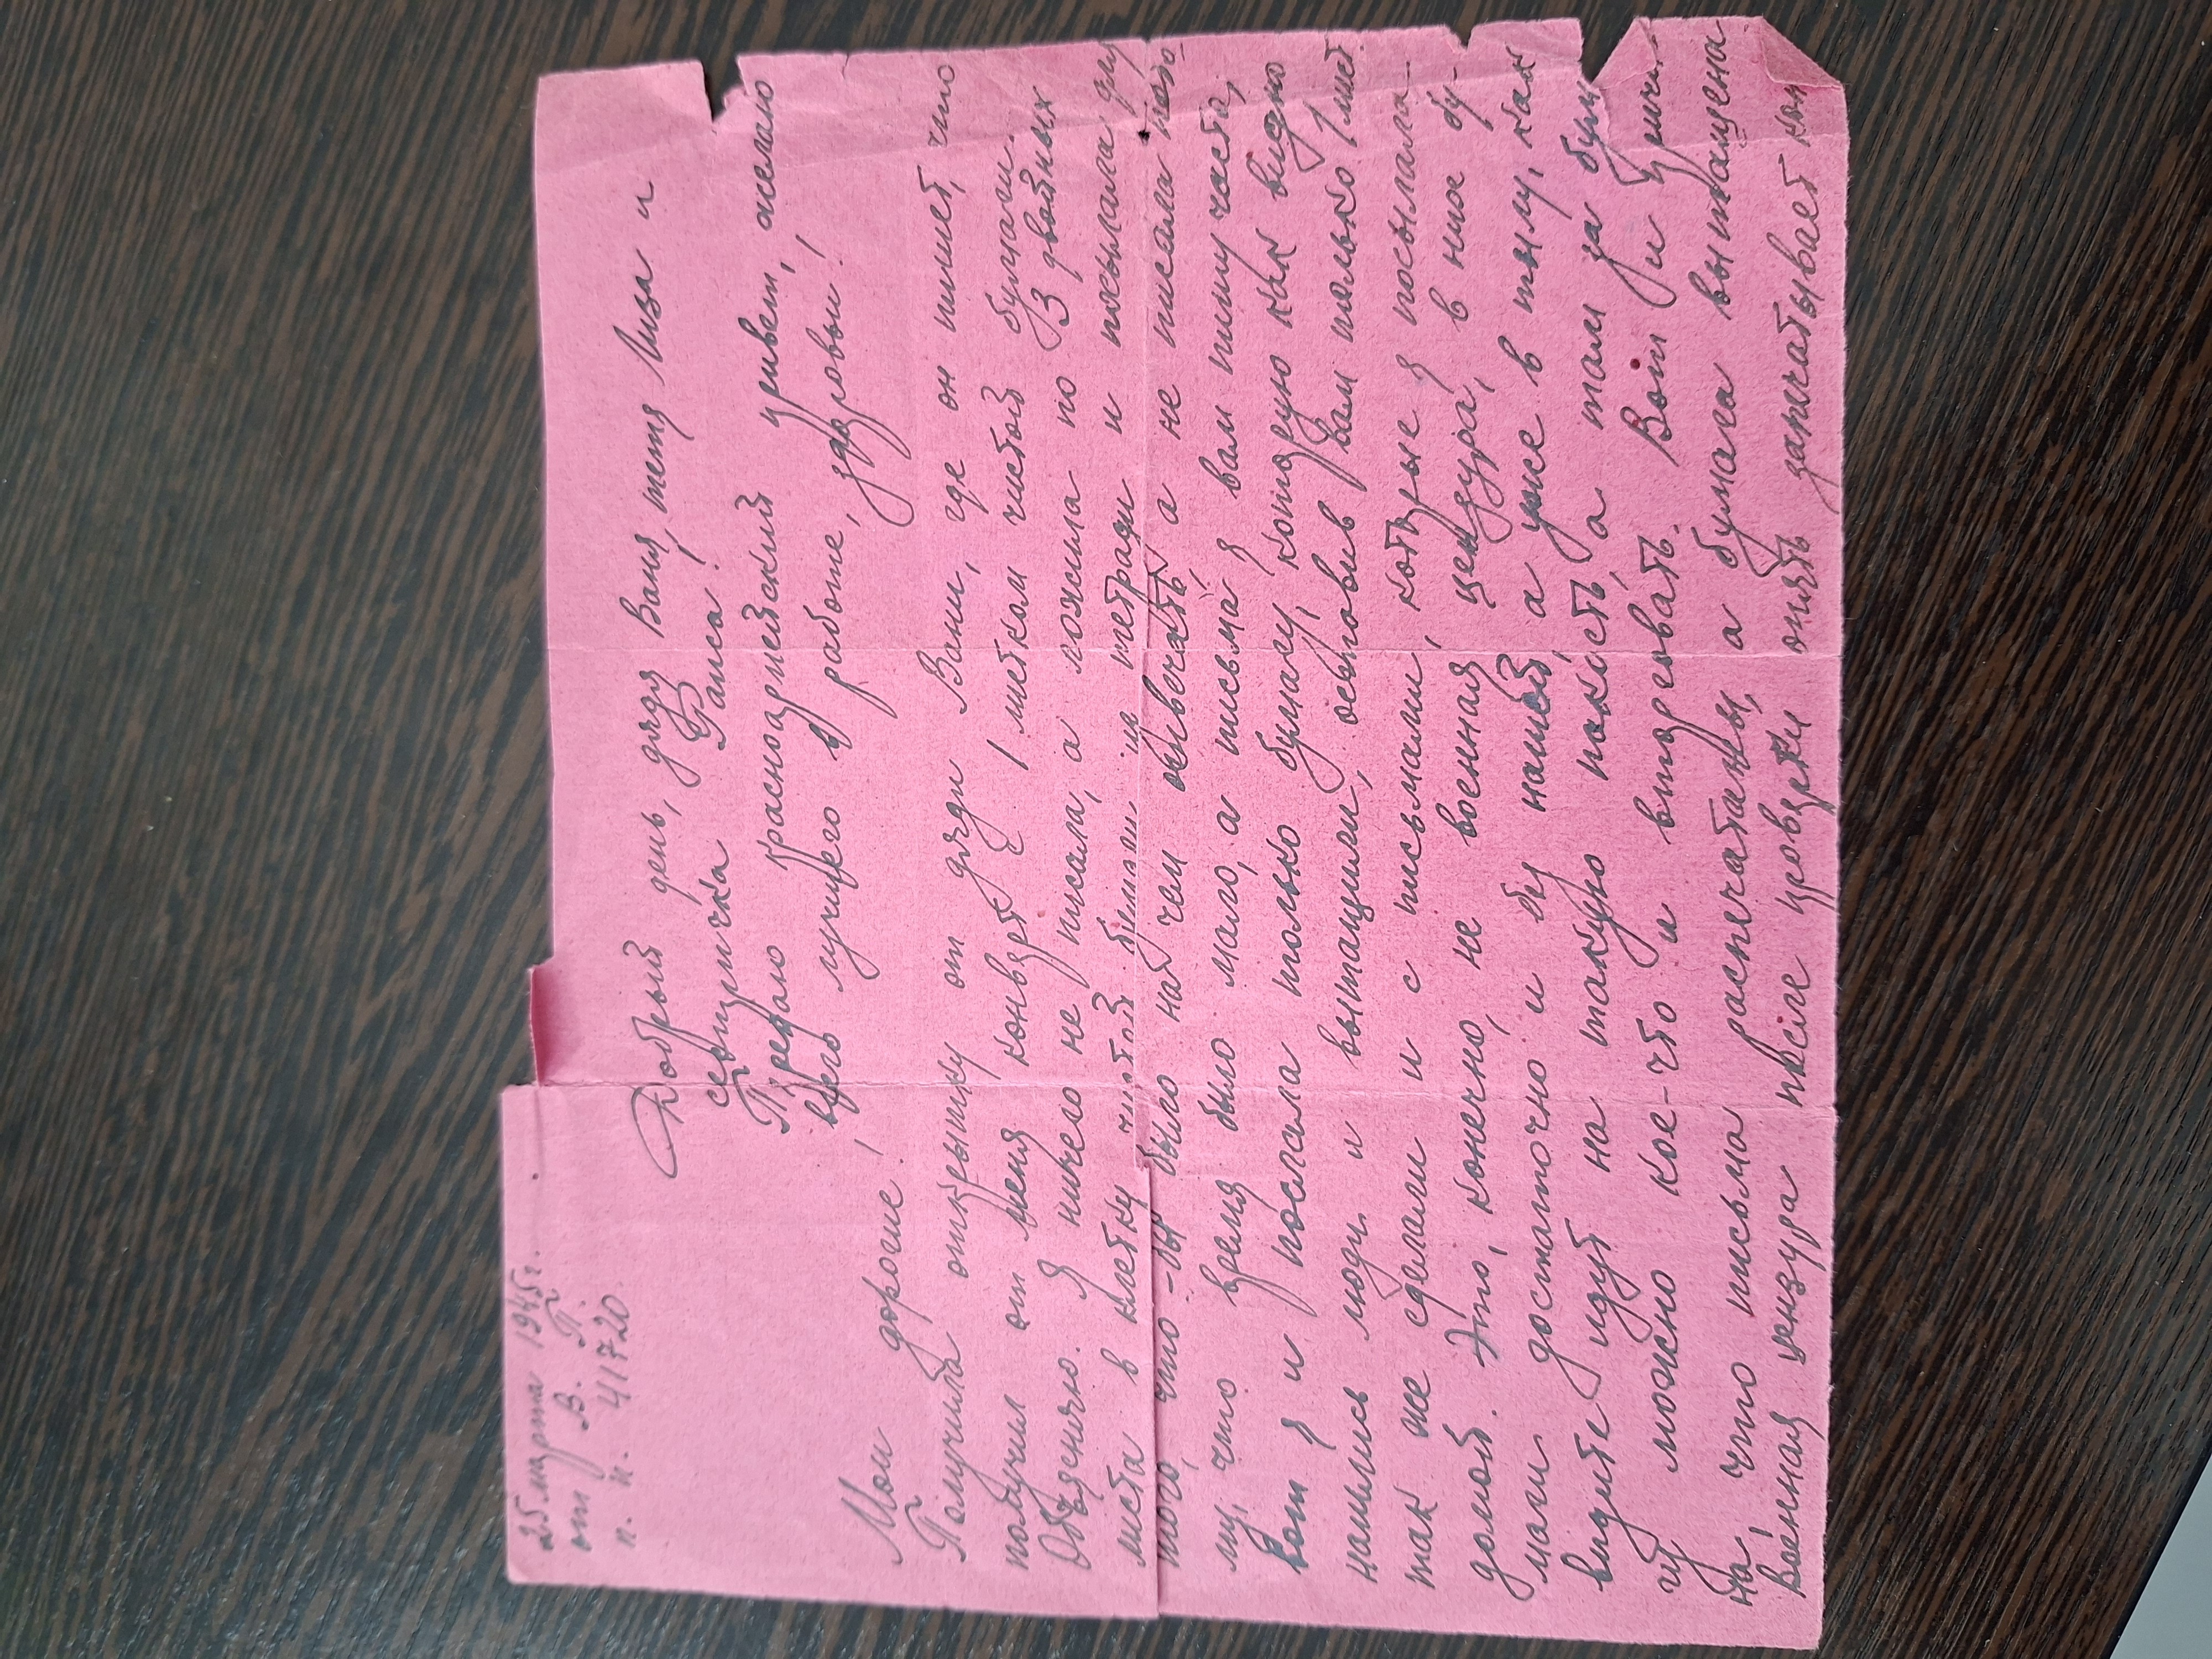 25 марта 1945 г.
от В. П.
п. п. 41720
Добрый день, дядя Ваня, тетя Лиза и
сестричка Раиса!
Передаю красноармейский привет, желаю
всего лучшего в работе, здоровьи!
Мои дорогие!
Получила открытку от дяди Вани, где он пишет, что
получил от меня конверт с 1 листком чистой бумаги.
Объясню. Я ничего не писала, а ложила по 3 двойных
листа в клетку чистой бумаги из тетради и посылала для
того, что-бы было на чем отвечать, а не писала пото-
му, что время было мало, а письма я вам пишу часто,
вот я и послала только бумагу, которую как видно
нашлись люди и вытащили, оставив вам только 1 лист.
так же сделали и с письмами, которые я посылала
домой. Это, конечно, не военная цензура, в ное бу-
маги достаточно и без нашей, а уже в тылу, как
видите идут на такую пакость, а там за бума
гу можно кое-что и выторговать. Вот и
на, что письма распечатаны, а бумага вытащена
Военная цензура после проверки опять запечатывает